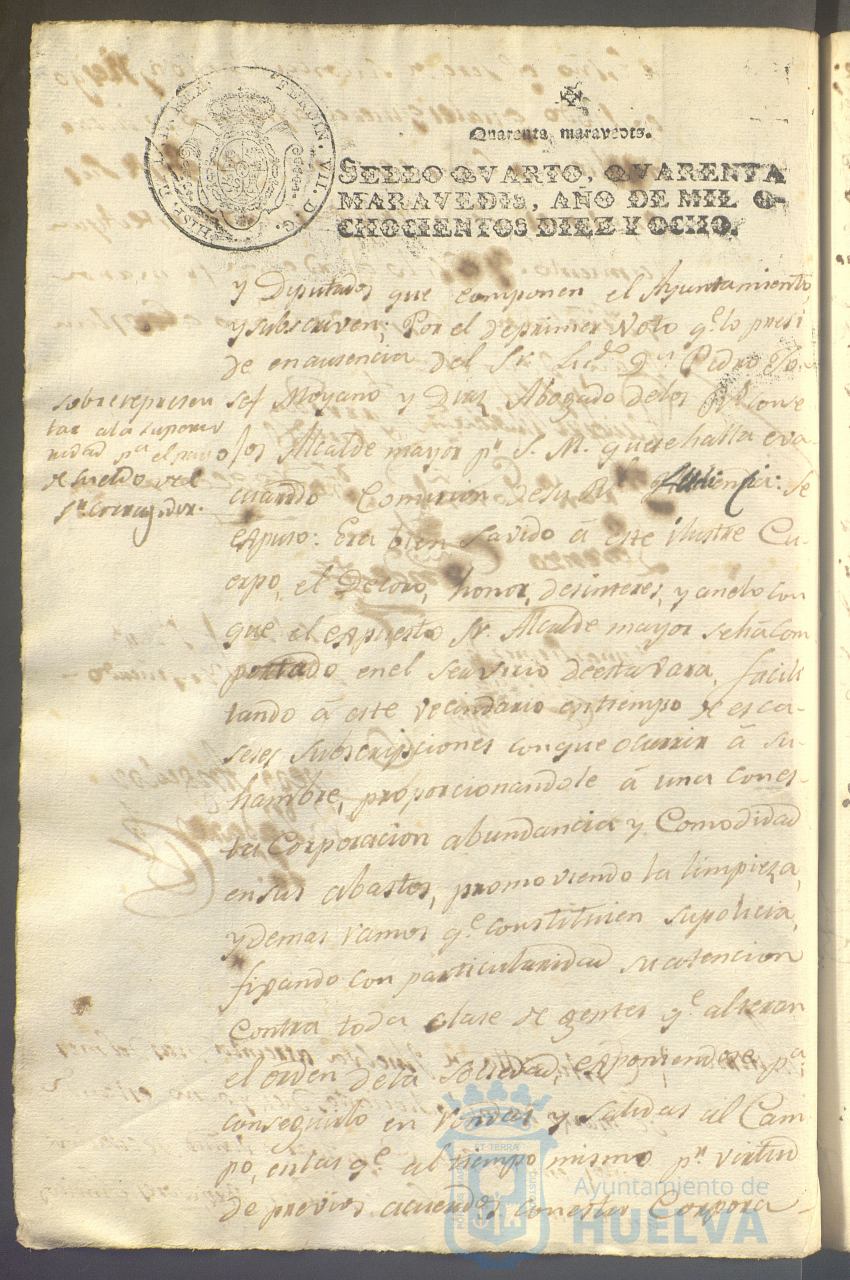 HISP. ET IND. REX. FERDIN. VII. D. G.
Quarenta maravedis.
SELLO QVARTO, QVARENTA
MARAVEDIS, AÑO DE MIL O-
CHOCIENTOS DIEZ Y OCHO.
y Diputados que componen el Ayuntamiento,
y subscriven; Por el de primer Voto qe. lo presi
de en ausencia del Sr. Licdo. Dn. Pedro Jo-
sef Moyano y Diaz Abogado delos Rs. Conse
jos Alcalde mayor pr. S. M. que se halla eva-
cuando Comision de su Rl. Audiencia: se
expuso: Era bien savido á este ilustre Cu-
erpo, el Decoro, honor, desinteres, y anelo con
que el expuesto Sr. Alcalde mayor se há com
portado en el servicio de esta vara, facili
tando á este vecindario en tiempo de esca-
seses subscripciones con que ocurrir á su
hambre, proporcionandole á una con es-
ta Corporacion abundancia y Comodidad
en sus abastos, promoviendo la limpieza,
y demas ramos qe. constituien su policia,
fixando con particularidad su atencion
contra toda clase de gentes qe. alteran
el orden de la Sociedad, exponiendose pa.
conseguirlo en Rondas y salidas al Cam
po, en las qe. al tiempo mismo pr. virtud
de previos acuerdos con esta Corpora-
sobre represen
tar a la superio
ridad pa. el pago
de sueldo del
Sr. Corregidor.
Ayuntamiento de
HUELVA